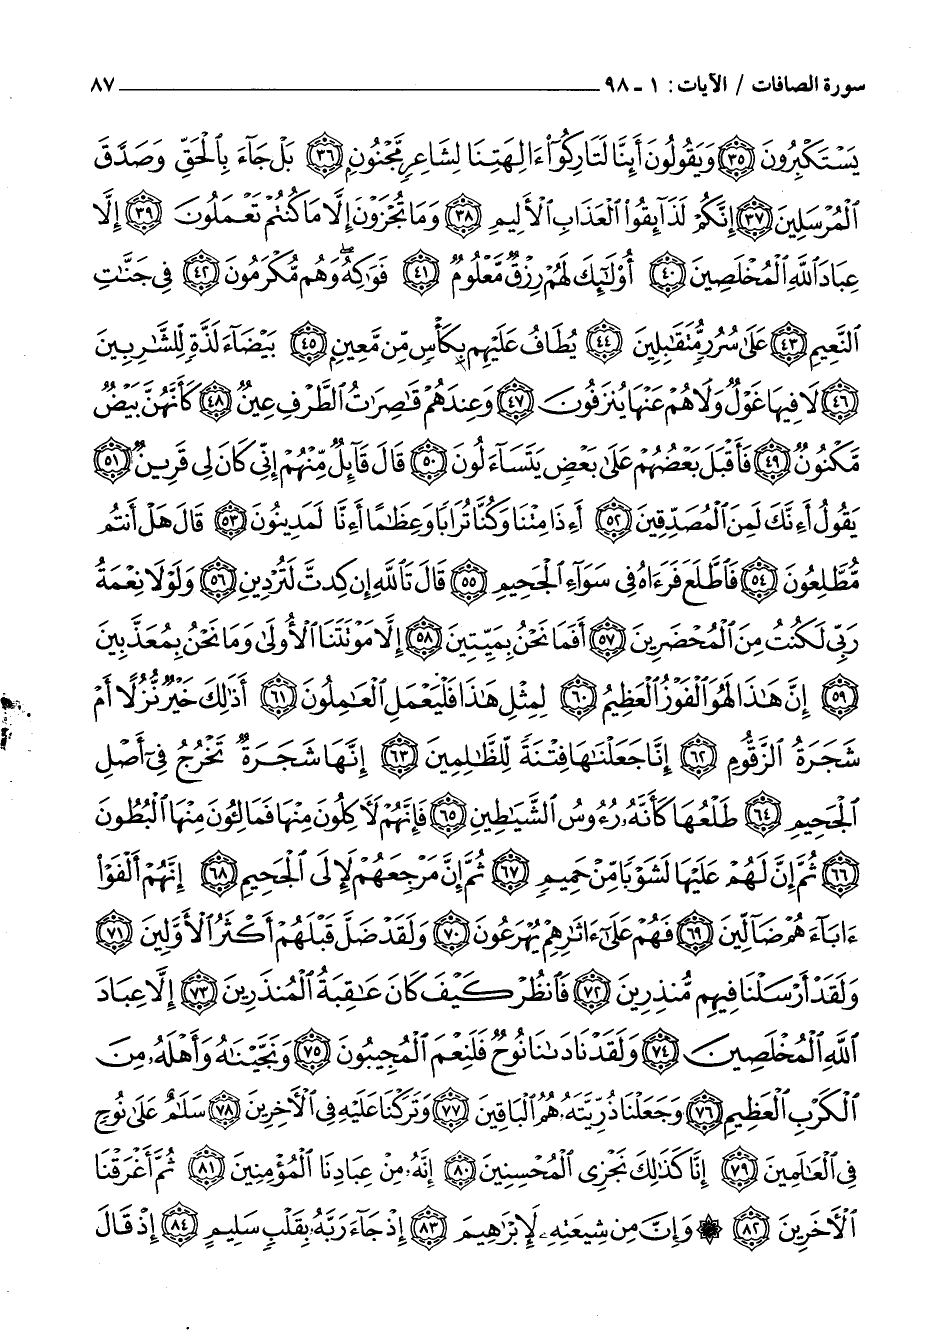 سورة الصافات / الآيات: ١ - ٩٨ ٨٧
يَسْتَكْبِرُونَ ﴿٣٥﴾ وَيَقُولُونَ أَئِنَّا لَتَارِكُوٓا۟ ءَالِهَتِنَا لِشَاعِرٍ مَّجْنُونٍ ﴿٣٦﴾ بَلْ جَآءَ بِٱلْحَقِّ وَصَدَّقَ
ٱلْمُرْسَلِينَ ﴿٣٧﴾ إِنَّكُمْ لَذَآئِقُوا۟ ٱلْعَذَابِ ٱلْأَلِيمِ ﴿٣٨﴾ وَمَا تُجْزَوْنَ إِلَّا مَا كُنتُمْ تَعْمَلُونَ ﴿٣٩﴾ إِلَّا
عِبَادَ ٱللَّهِ ٱلْمُخْلَصِينَ ﴿٤٠﴾ أُو۟لَٰٓئِكَ لَهُمْ رِزْقٌ مَّعْلُومٌ ﴿٤١﴾ فَوَٰكِهُ ۖ وَهُم مُّكْرَمُونَ ﴿٤٢﴾ فِى جَنَّٰتِ
ٱلنَّعِيمِ ﴿٤٣﴾ عَلَىٰ سُرُرٍ مُّتَقَٰبِلِينَ ﴿٤٤﴾ يُطَافُ عَلَيْهِم بِكَأْسٍ مِّن مَّعِينٍ ﴿٤٥﴾ بَيْضَآءَ لَذَّةٍ لِّلشَّٰرِبِينَ
﴿٤٦﴾ لَا فِيهَا غَوْلٌ وَلَا هُمْ عَنْهَا يُنزَفُونَ ﴿٤٧﴾ وَعِندَهُمْ قَٰصِرَٰتُ ٱلطَّرْفِ عِينٌ ﴿٤٨﴾ كَأَنَّهُنَّ بَيْضٌ
مَّكْنُونٌ ﴿٤٩﴾ فَأَقْبَلَ بَعْضُهُمْ عَلَىٰ بَعْضٍ يَتَسَآءَلُونَ ﴿٥٠﴾ قَالَ قَآئِلٌ مِّنْهُمْ إِنِّى كَانَ لِى قَرِينٌ ﴿٥١﴾
يَقُولُ أَءِنَّكَ لَمِنَ ٱلْمُصَدِّقِينَ ﴿٥٢﴾ أَءِذَا مِتْنَا وَكُنَّا تُرَابًا وَعِظَٰمًا أَءِنَّا لَمَدِينُونَ ﴿٥٣﴾ قَالَ هَلْ أَنتُم
مُّطَّلِعُونَ ﴿٥٤﴾ فَٱطَّلَعَ فَرَءَاهُ فِى سَوَآءِ ٱلْجَحِيمِ ﴿٥٥﴾ قَالَ تَٱللَّهِ إِن كِدتَّ لَتُرْدِينِ ﴿٥٦﴾ وَلَوْلَا نِعْمَةُ
رَبِّى لَكُنتُ مِنَ ٱلْمُحْضَرِينَ ﴿٥٧﴾ أَفَمَا نَحْنُ بِمَيِّتِينَ ﴿٥٨﴾ إِلَّا مَوْتَتَنَا ٱلْأُولَىٰ وَمَا نَحْنُ بِمُعَذَّبِينَ
﴿٥٩﴾ إِنَّ هَٰذَا لَهُوَ ٱلْفَوْزُ ٱلْعَظِيمُ ﴿٦٠﴾ لِمِثْلِ هَٰذَا فَلْيَعْمَلِ ٱلْعَٰمِلُونَ ﴿٦١﴾ أَذَٰلِكَ خَيْرٌ نُّزُلًا أَمْ
شَجَرَةُ ٱلزَّقُّومِ ﴿٦٢﴾ إِنَّا جَعَلْنَٰهَا فِتْنَةً لِّلظَّٰلِمِينَ ﴿٦٣﴾ إِنَّهَا شَجَرَةٌ تَخْرُجُ فِىٓ أَصْلِ
ٱلْجَحِيمِ ﴿٦٤﴾ طَلْعُهَا كَأَنَّهُۥ رُءُوسُ ٱلشَّيَٰطِينِ ﴿٦٥﴾ فَإِنَّهُمْ لَءَاكِلُونَ مِنْهَا فَمَالِـُٔونَ مِنْهَا ٱلْبُطُونَ
﴿٦٦﴾ ثُمَّ إِنَّ لَهُمْ عَلَيْهَا لَشَوْبًا مِّنْ حَمِيمٍ ﴿٦٧﴾ ثُمَّ إِنَّ مَرْجِعَهُمْ لَإِلَى ٱلْجَحِيمِ ﴿٦٨﴾ إِنَّهُمْ أَلْفَوْا۟
ءَابَآءَهُمْ ضَآلِّينَ ﴿٦٩﴾ فَهُمْ عَلَىٰٓ ءَاثَٰرِهِمْ يُهْرَعُونَ ﴿٧٠﴾ وَلَقَدْ ضَلَّ قَبْلَهُمْ أَكْثَرُ ٱلْأَوَّلِينَ ﴿٧١﴾
وَلَقَدْ أَرْسَلْنَا فِيهِم مُّنذِرِينَ ﴿٧٢﴾ فَٱنظُرْ كَيْفَ كَانَ عَٰقِبَةُ ٱلْمُنذَرِينَ ﴿٧٣﴾ إِلَّا عِبَادَ
ٱللَّهِ ٱلْمُخْلَصِينَ ﴿٧٤﴾ وَلَقَدْ نَادَىٰنَا نُوحٌ فَلَنِعْمَ ٱلْمُجِيبُونَ ﴿٧٥﴾ وَنَجَّيْنَٰهُ وَأَهْلَهُۥ مِنَ
ٱلْكَرْبِ ٱلْعَظِيمِ ﴿٧٦﴾ وَجَعَلْنَا ذُرِّيَّتَهُۥ هُمُ ٱلْبَاقِينَ ﴿٧٧﴾ وَتَرَكْنَا عَلَيْهِ فِى ٱلْءَاخِرِينَ ﴿٧٨﴾ سَلَٰمٌ عَلَىٰ نُوحٍ
فِى ٱلْعَٰلَمِينَ ﴿٧٩﴾ إِنَّا كَذَٰلِكَ نَجْزِى ٱلْمُحْسِنِينَ ﴿٨٠﴾ إِنَّهُۥ مِنْ عِبَادِنَا ٱلْمُؤْمِنِينَ ﴿٨١﴾ ثُمَّ أَغْرَقْنَا
ٱلْءَاخَرِينَ ﴿٨٢﴾ ۞ وَإِنَّ مِن شِيعَتِهِۦ لَإِبْرَٰهِيمَ ﴿٨٣﴾ إِذْ جَآءَ رَبَّهُۥ بِقَلْبٍ سَلِيمٍ ﴿٨٤﴾ إِذْ قَالَ